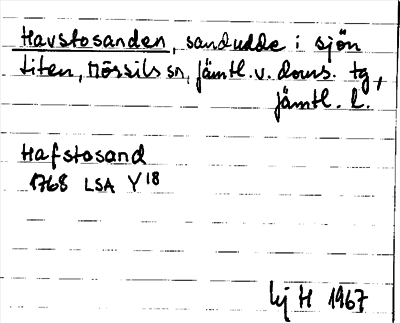 Havstosanden, sandudde i sjön
Liten, Mörsils sn, Jämtl. v. doms. tg,
Jämtl. l.
Hafstosand
1768 LSA Y18
Lij H 1967